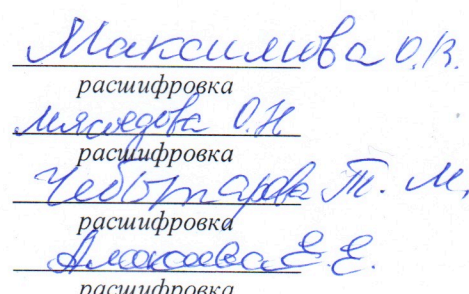 Максимова О.В.
расшифровка
Мясоедова О.Н
расшифровка
Чеботарова Т. М,
расшифровка
Е.Е.
расшифровка